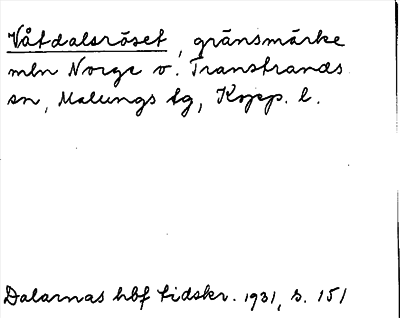 Våtdalsröset, gränsmärke
mln Norge o. Transtrands
sn, Malungs tg, Kopp. l.
Dalarnas hbf tidskr. 1931, s. 151